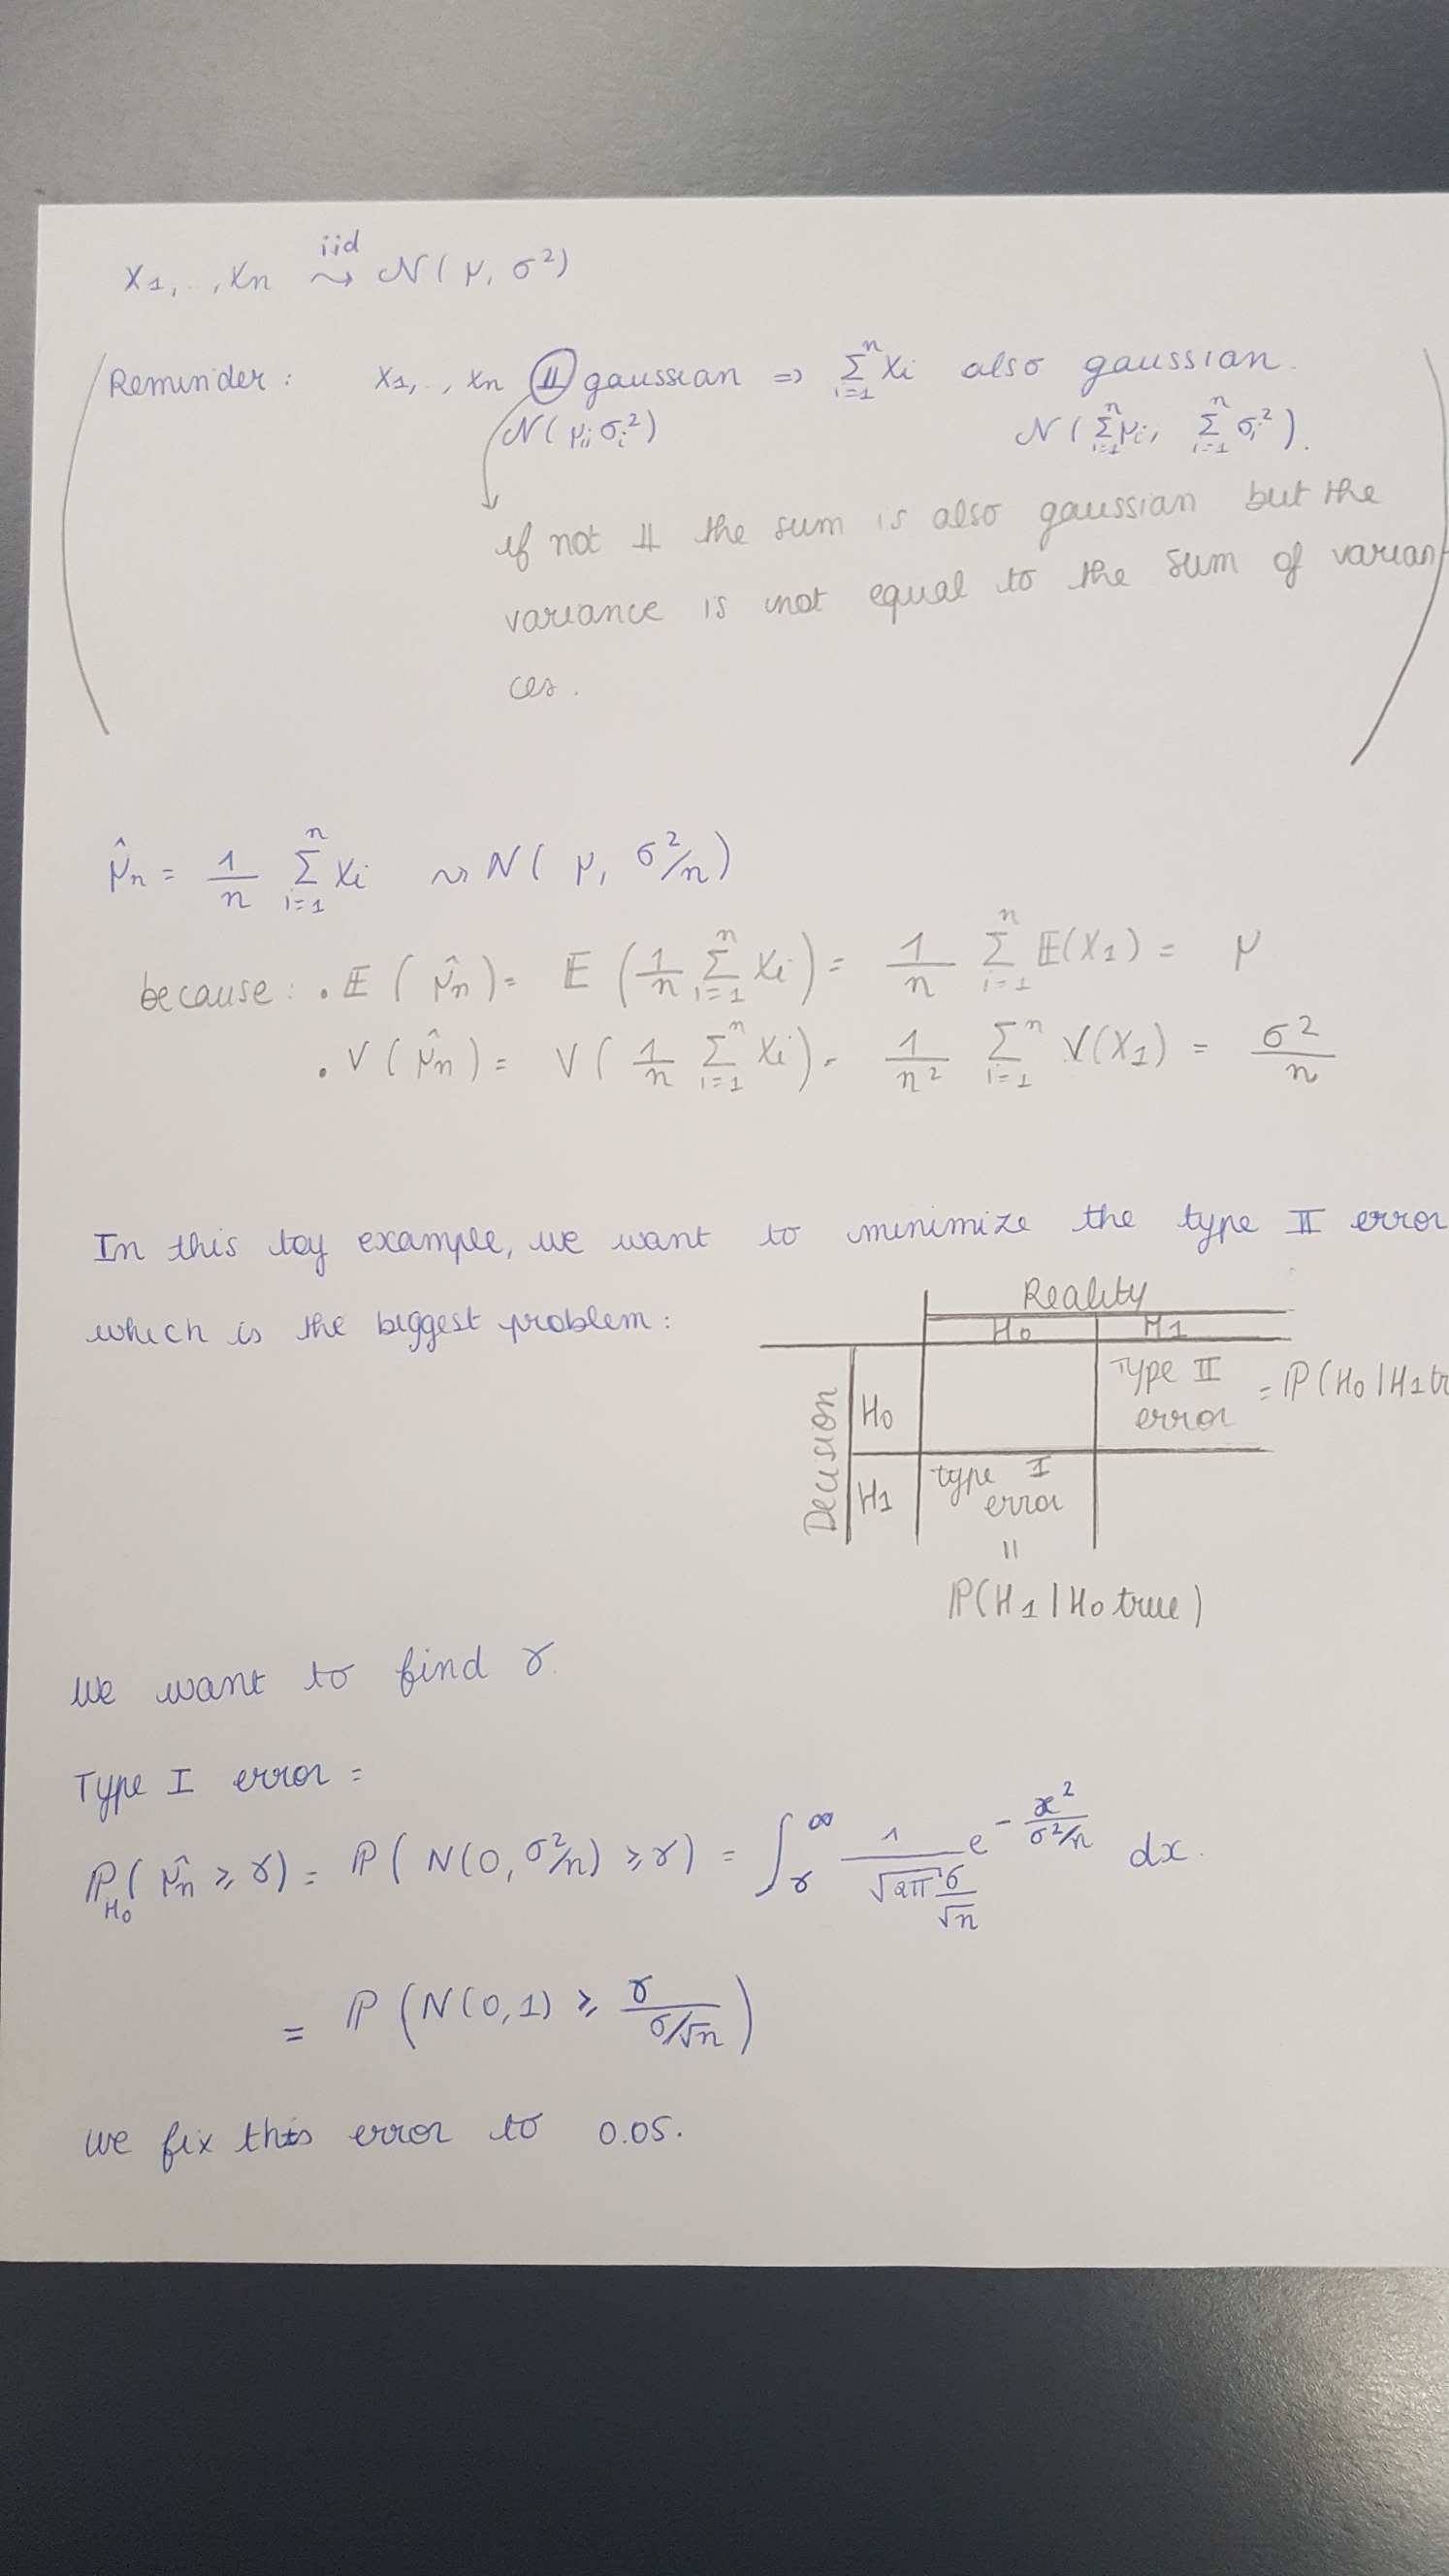 X1,..,Xn iid ⇝ N(μ, σ²)
(Reminder : X1,.., Xn ⫫ gaussian => Σ_{i=1}^n Xi also gaussian.
N(μi, σi²) N(Σ_{i=1}^n μi, Σ_{i=1}^n σi²).
if not ⫫ the sum is also gaussian but the
variance is not equal to the sum of varian
ces.)
μ̂n = 1/n Σ_{i=1}^n Xi ⇝ N(μ, σ²/n)
because : . E(μ̂n) = E(1/n Σ_{i=1}^n Xi) = 1/n Σ_{i=1}^n E(X1) = μ
. V(μ̂n) = V(1/n Σ_{i=1}^n Xi) = 1/n² Σ_{i=1}^n V(X1) = σ²/n
In this toy example, we want to minimize the type II error
which is the biggest problem :
Reality
H0 H1
Decision
H0 Type II error = P(H0 | H1 tr
H1 type I error
=
P(H1 | H0 true)
We want to find γ.
Type I error =
P_{H0}(μ̂n ⩾ γ) = P(N(0, σ²/n) ⩾ γ) = ∫_γ^∞ 1/(√2π σ/√n) e^{-x²/(σ²/n)} dx.
= P(N(0,1) ⩾ γ/(σ/√n))
we fix this error to 0.05.